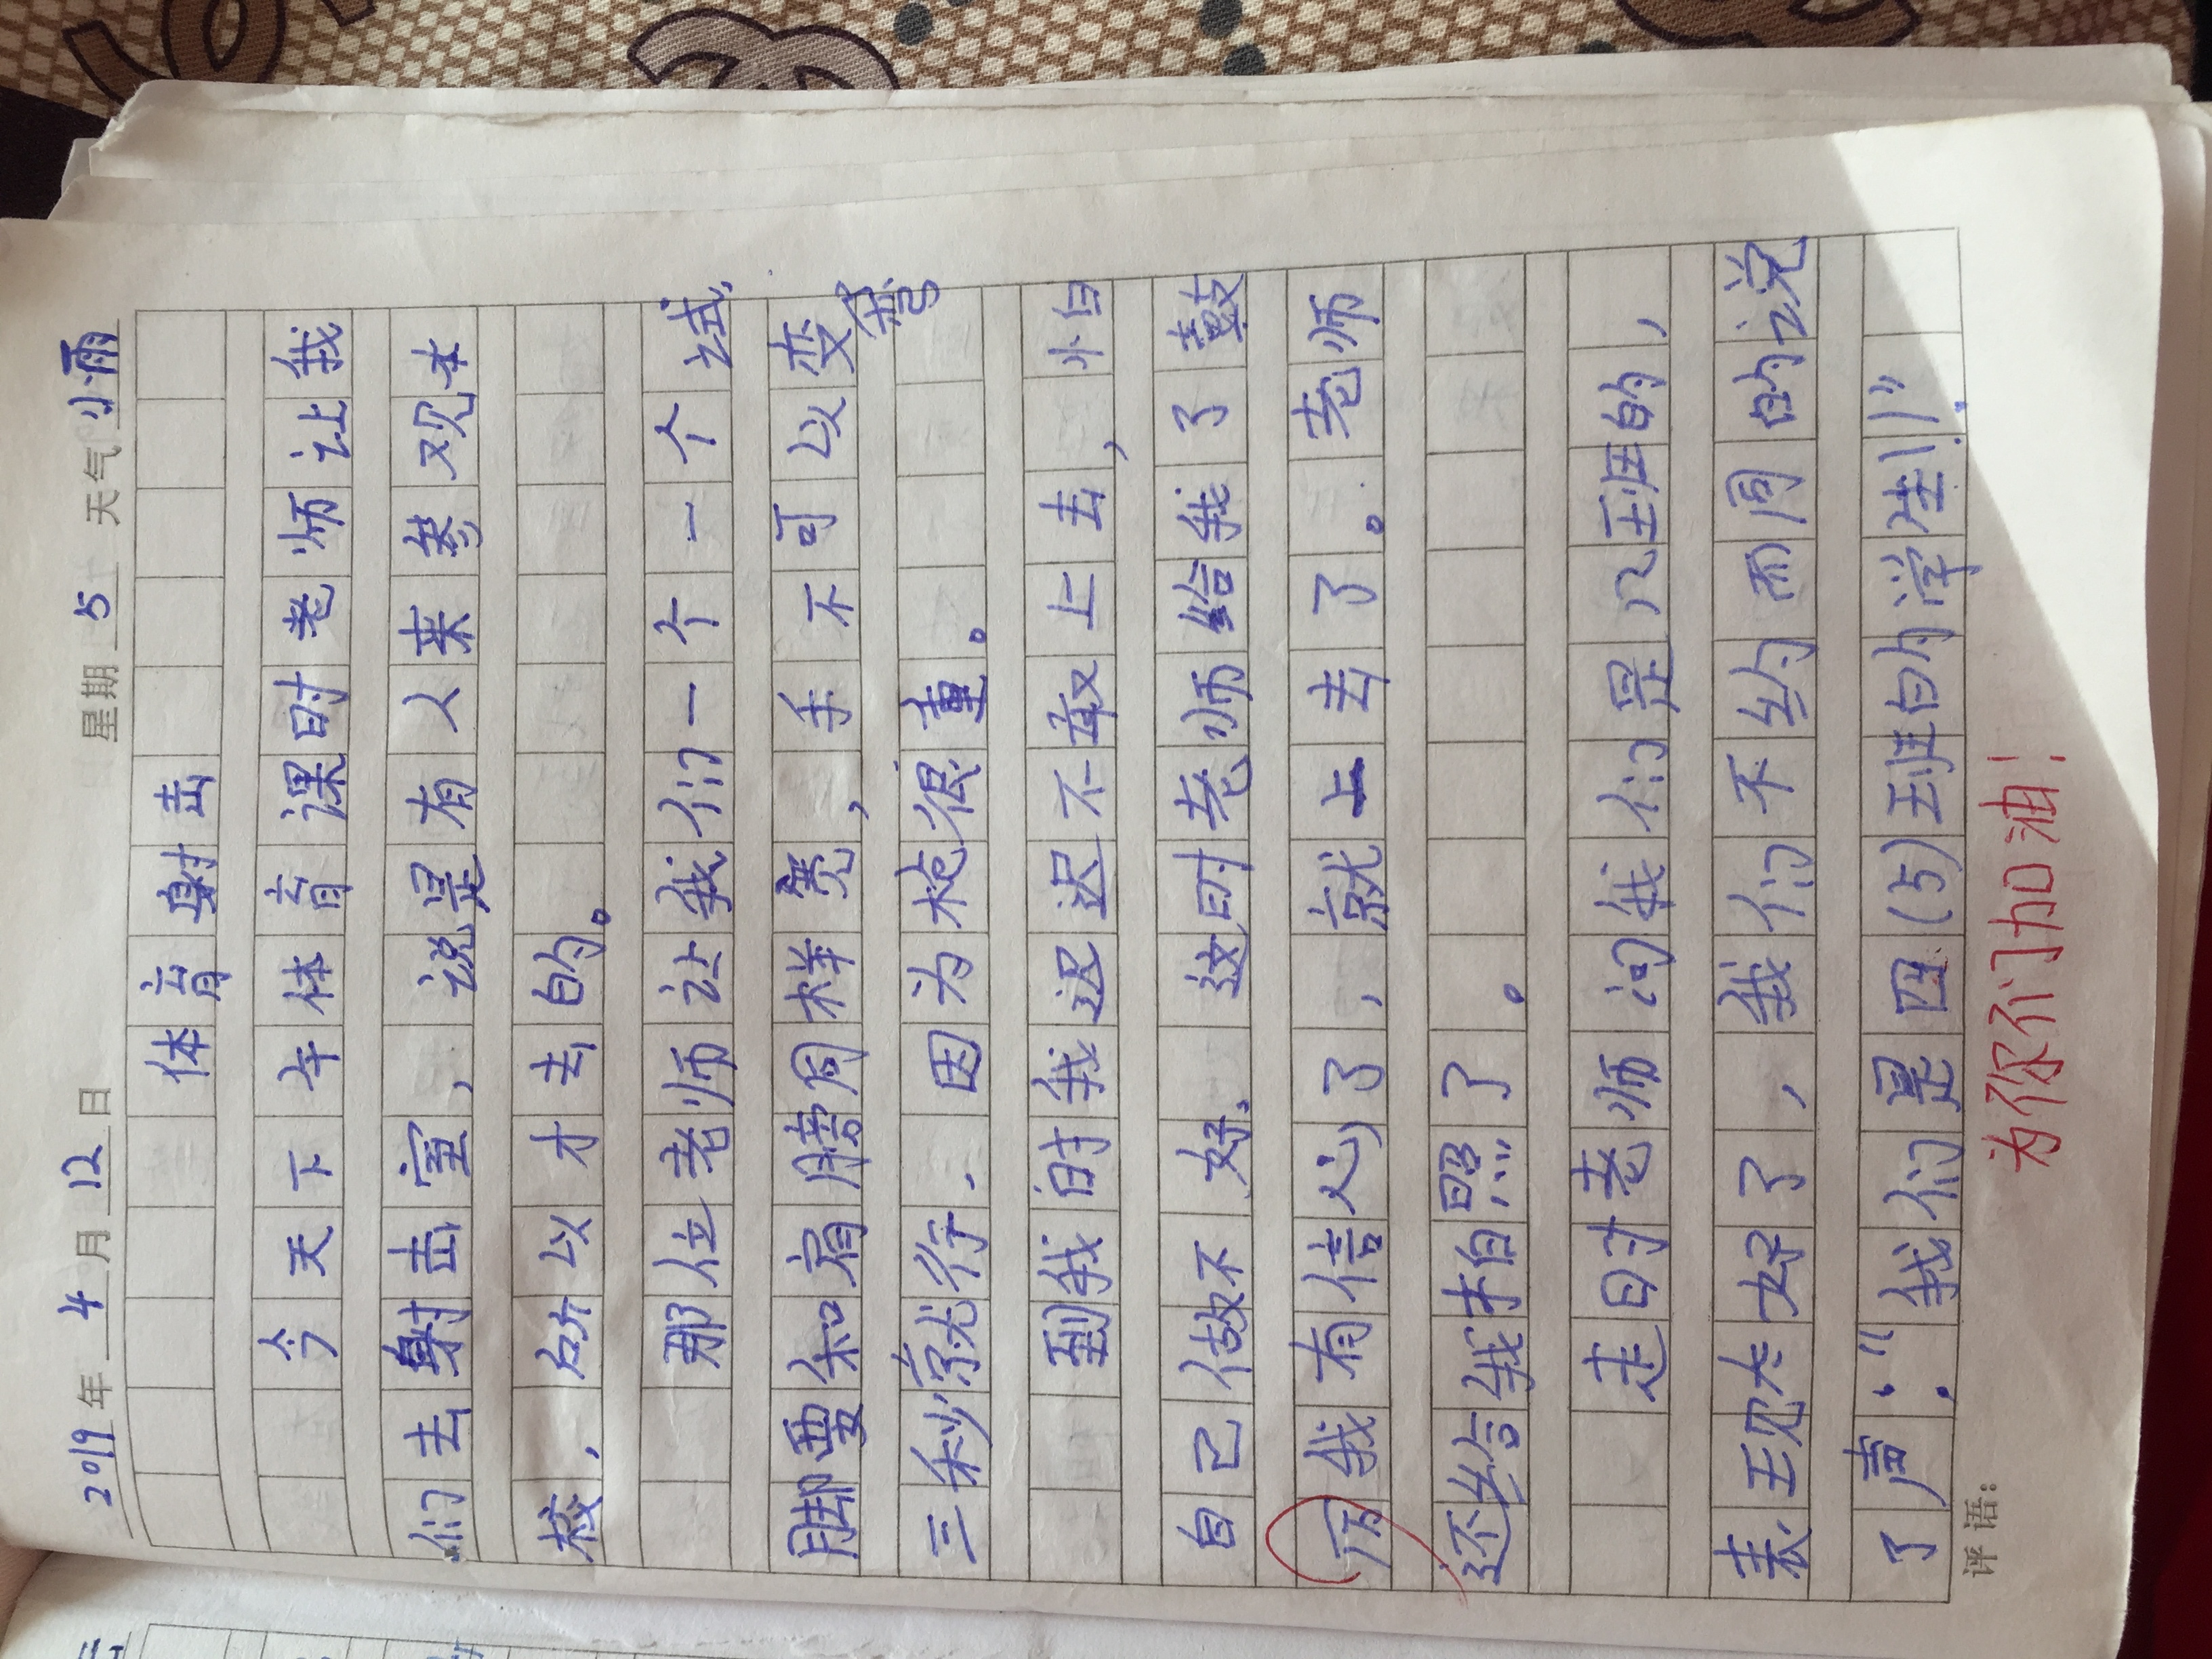 2019年 4月 12日 星期 5 天气 小雨
体育射击
今天下午体育课时老师让我
们去射击室，说是有人来参观本
校，所以才去的。
那位老师让我们一个一个试，
脚要和肩膀同样宽，手不可以变
弯
三秒就行．因为枪很重。
到我时我迟迟不敢上去，怕
自己做不好．这时老师给我了鼓
厉我有信心了，就上去了。老师
还给我拍照了。
走时老师问我们是几班的，
表现太好了，我们不约而同的说
了声：“我们是四(5)班的学生!”
评语：
为你们加油！